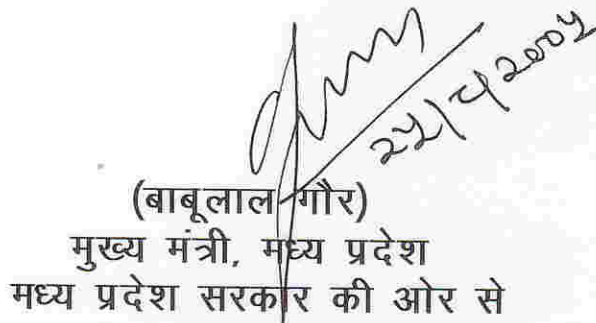 २५|८|2005
(बाबूलाल गौर)
मुख्य मंत्री, मध्य प्रदेश
मध्य प्रदेश सरकार की ओर से